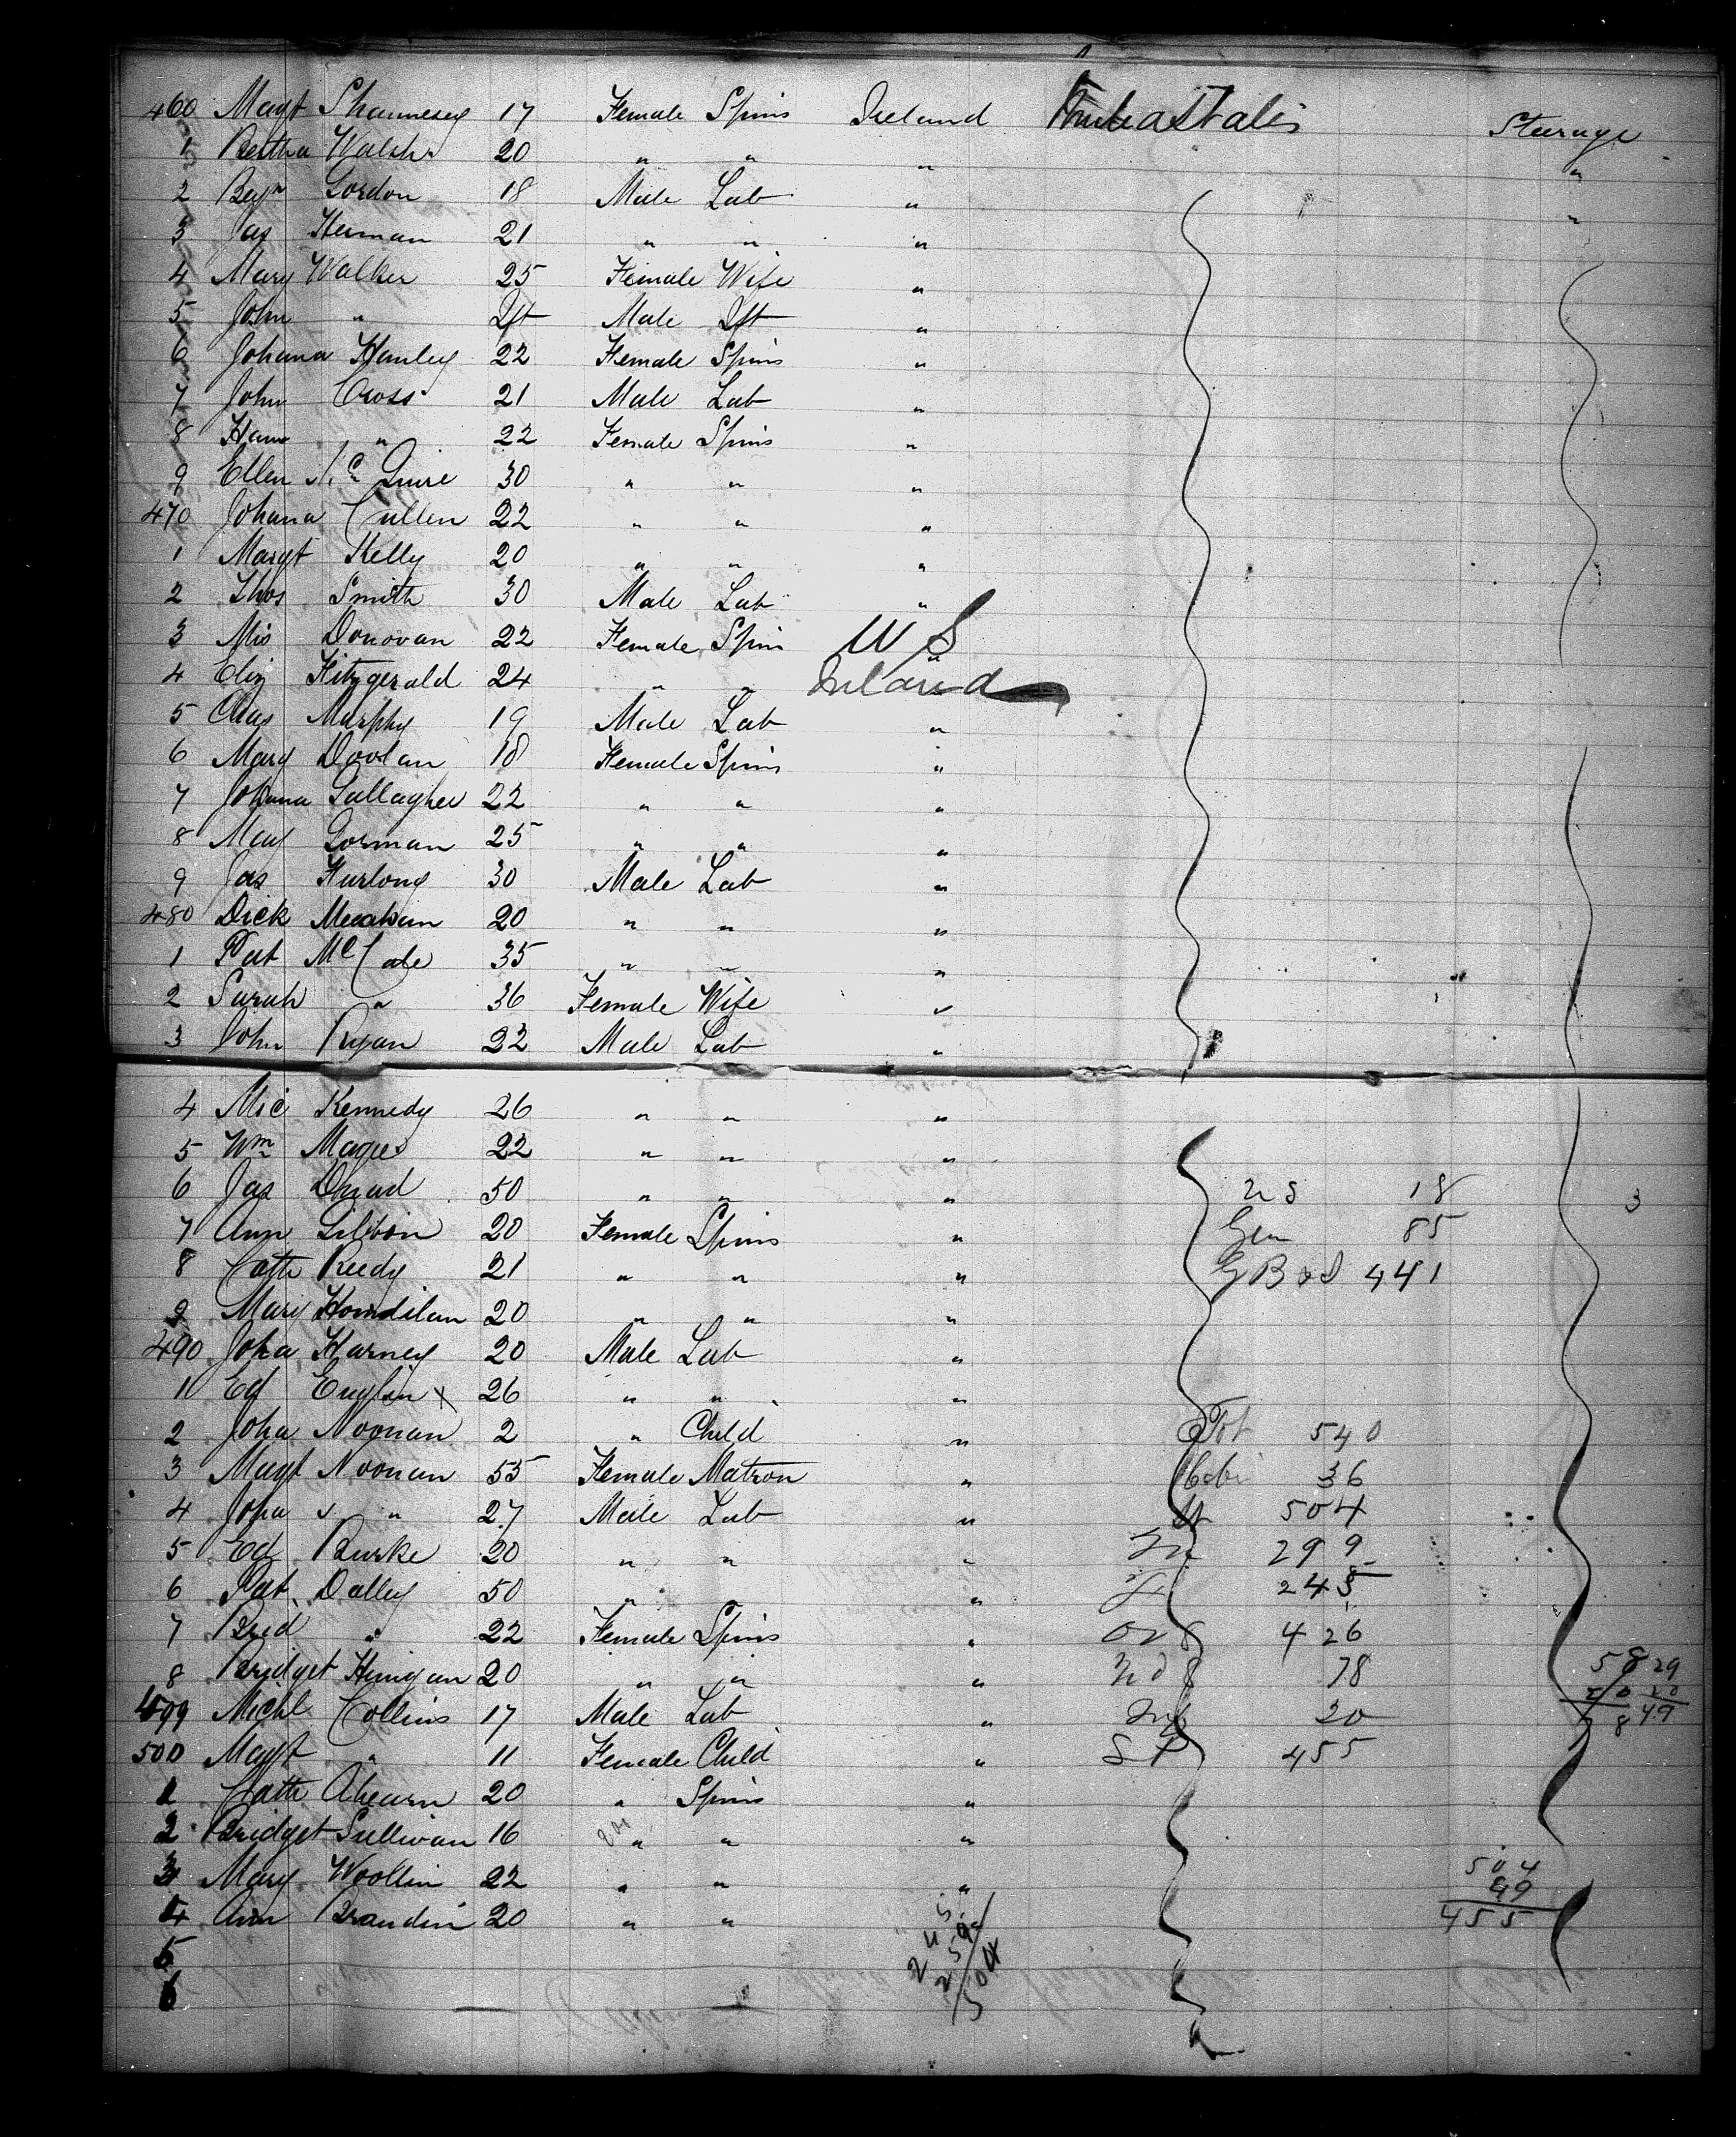 460 Magt Shaunesey 17 Female Spins Ireland United States Steerage
1 Bertha Walsh 20 " " " "
2 Benjn Gordon 18 Male Lab " "
3 Jas Herman 21 " " "
4 Mary Walker 25 Female Wife "
5 John " Ift Male Ift "
6 Johana Hanley 22 Female Spins "
7 John Cross 21 Male Lab "
8 Hana " 22 Female Spins "
9 Ellen McQuire 30 " " "
470 Johana Cullen 22 " " "
1 Margt Kelly 20 " " "
2 Thos Smith 30 Male Lab "
3 Mis Donovan 22 Female Spin U S
4 Eliz Fitzgerald 24 " " Ireland
5 Chas Murphy 19 Male Lab "
6 Mary Doolan 18 Female Spins "
7 Johana Gallagher 22 " " "
8 Mary Gorman 25 " " "
9 Jas Furlong 30 Male Lab "
480 Dick 20 " " "
1 Pat McCabe 35 " " "
2 Sarah " 36 Female Wife "
3 John Ryan 22 Male Lab "
4 Mic Kennedy 26 " " "
5 Wm Magee 22 " " "
6 Jas 50 " " " U S 18 3
7 Ann Gibbon 20 Female Spins " Ger 85
8 Cath Reedy 21 " " " G B & I 441
9 Mary 20 " " "
490 John Harney 20 Male Lab "
1 Ed English x 26 " " "
2 John Noonan 2 " Child " Tot 540
3 Magt Noonan 55 Female Matron " Cabi 36
4 John " 27 Male Lab " St 504
5 Ed Burke 20 " " " M 299
6 Pat Dalley 50 " " F 245
7 Brid " 22 Female Spins " Ov 8 426
8 Bridget Hinigan 20 " " " Nd 8 78 58 29
499 Michl Collins 17 Male Lab " Inf 20 20 20
8 49
500 Magt " 11 Female Child " St 455
1 Cath Ahearn 20 " Spins "
2 Bridget Sullivan 16 " " "
3 Mary Woollin 22 " " " 504
49
4 Ann Brandin 20 " " 455
5 245
259
6 504